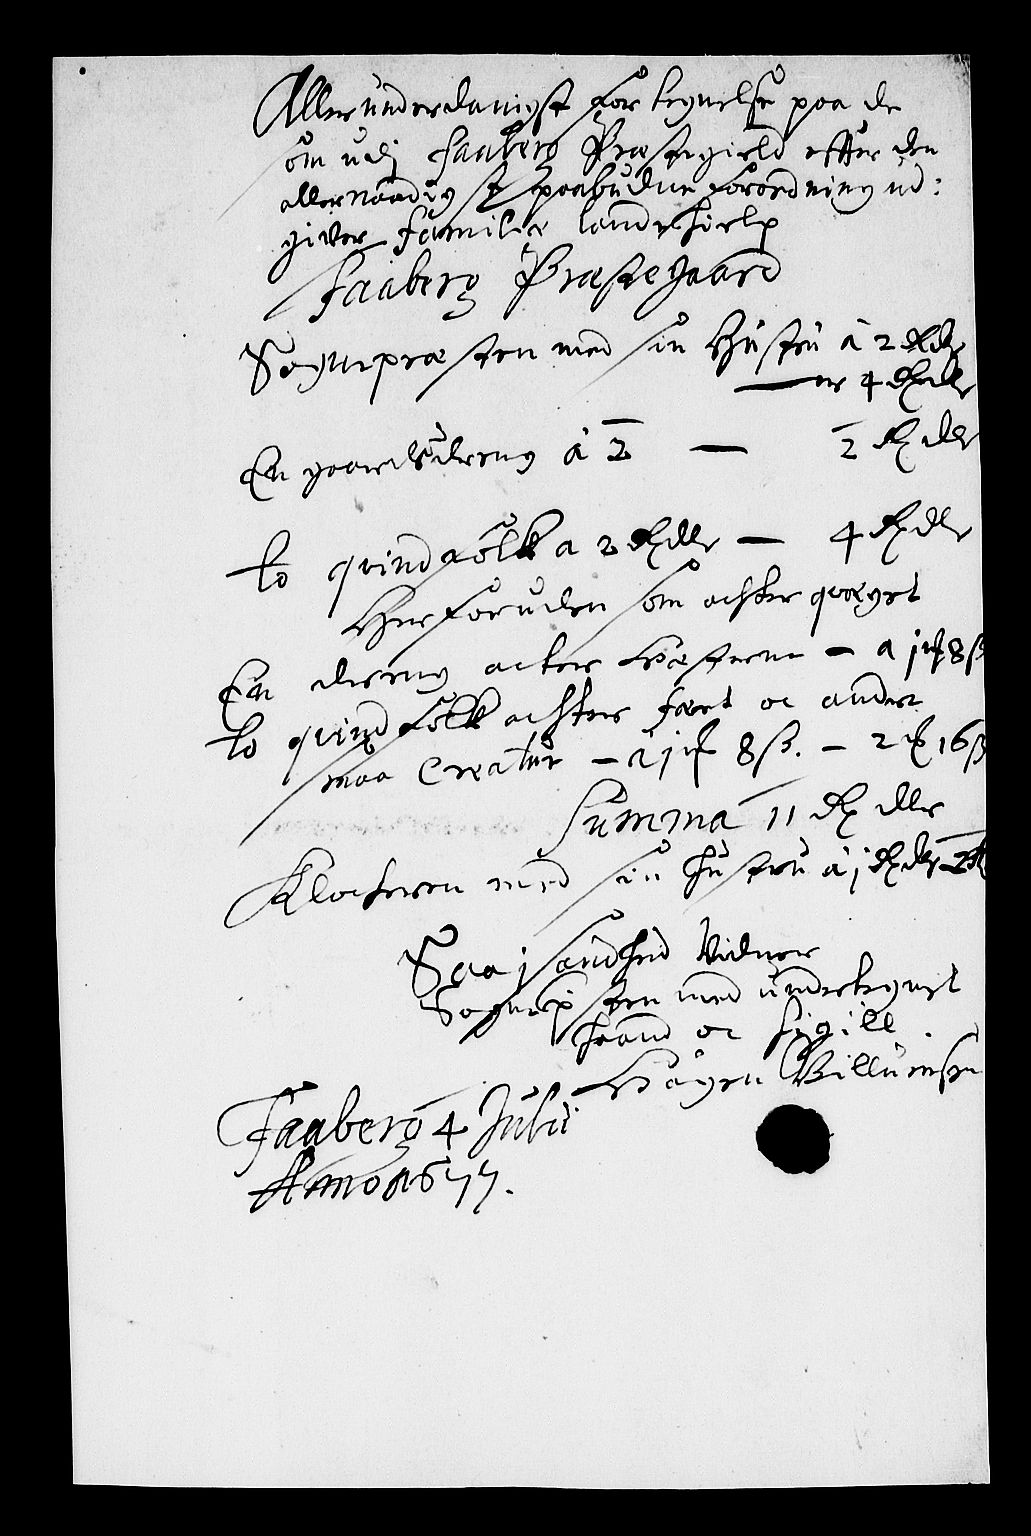 Allerunderdanigst fortegnelse paa de
som udj Faaberg Præstegield effter den
allernaadigst paabudne forordning ud:
gifver familie landehielp
Faaberg Præstegaard
Sognepræsten med sin Hustru à 2 Rdr
er 4 Rx dlr
En gaards dreng à 2 — 2 Rx dlr
to quindfolk a 2 Rx dlr — 4 Rx dlr
Her foruden som achter qvæget
En dreng acter hæsterne — a j mk 8 s
to quindfolk achter faet oc andet
smaa Creatur — a j mk 8 s. — 2 mk 16 s
Summa 11 Rx dler
Klockeren med sin hustru à j Rx dlr 2 R
Saa j sandhed Vidner
Sognepsten med undertegnet
haand oc Sigill.
Hågen Villumsen
Faaberg 4 Julii
Anno 1677.